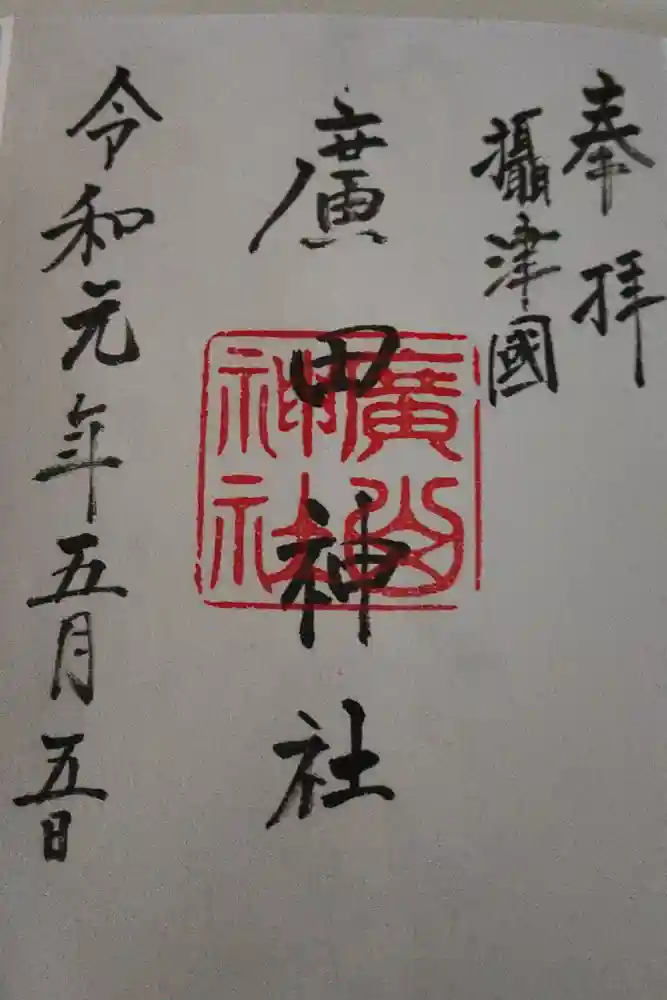 奉拝
攝津國
廣田神社
廣田神社
令和元年五月五日